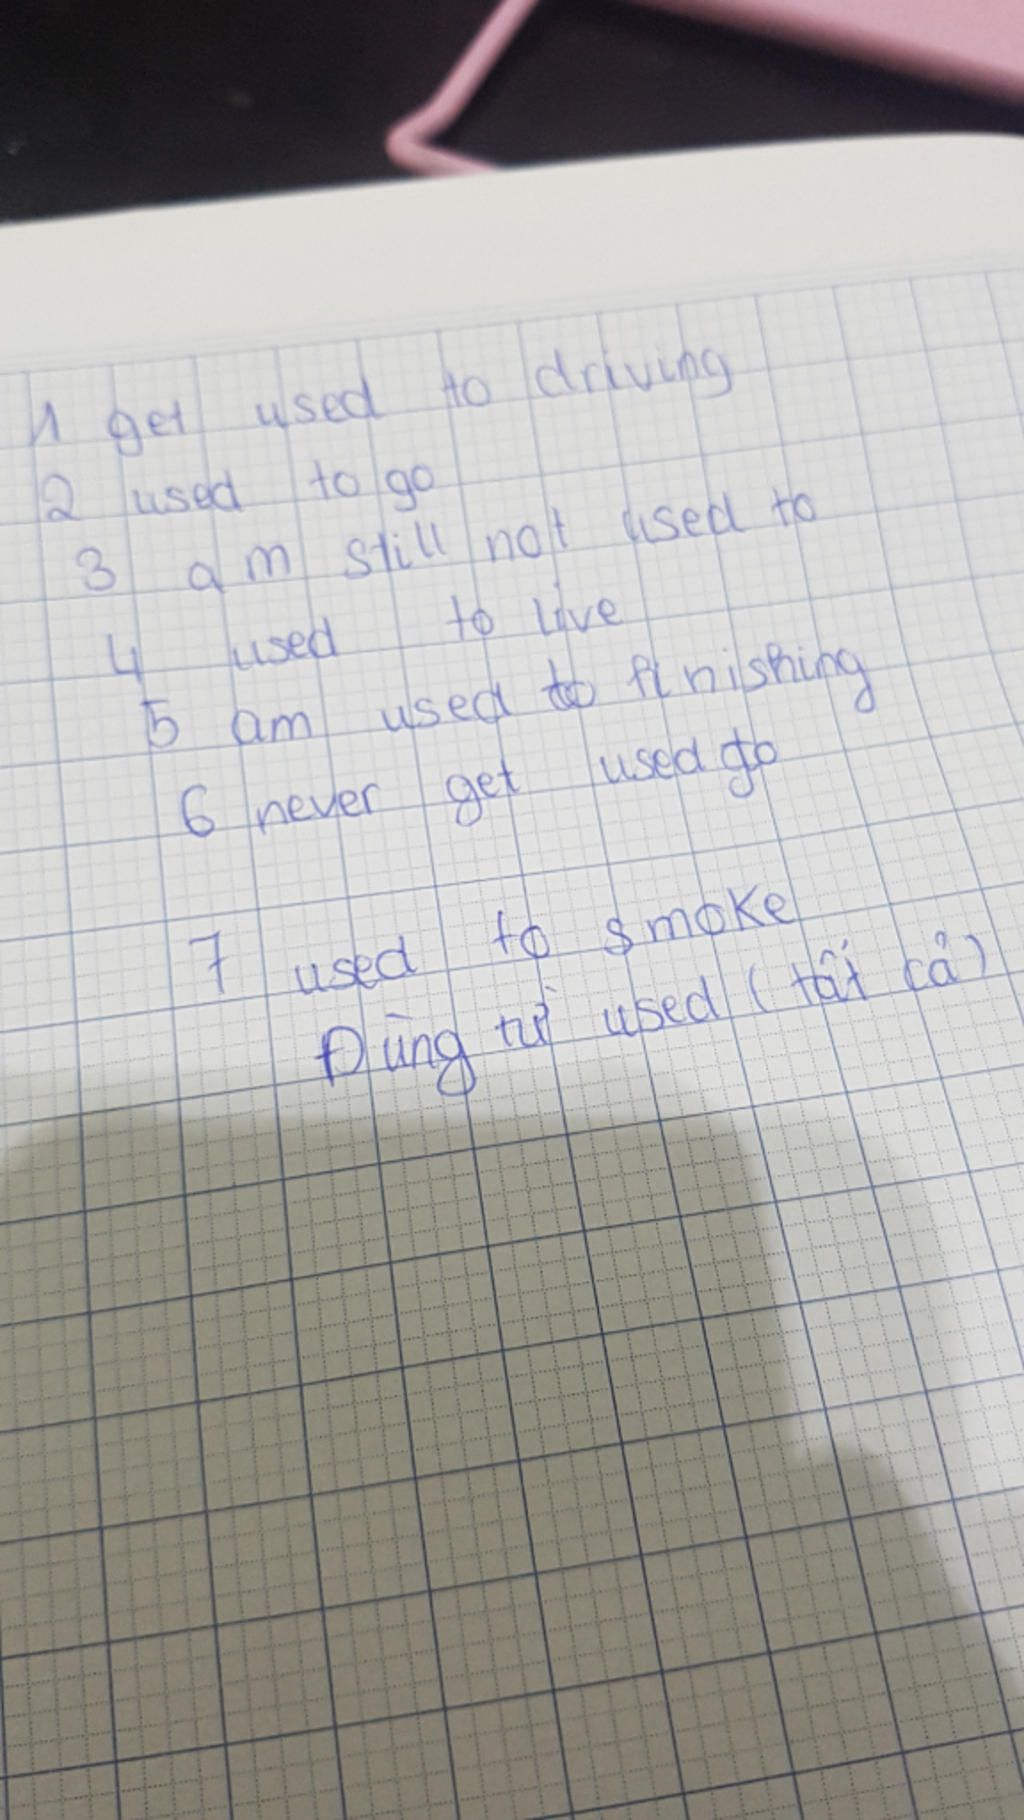 1 get used to driving
2 used to go
3 am still not used to
4 used to live
5 am used to finishing
6 never get used to
7 used to smoke
Dùng từ used (tất cả)